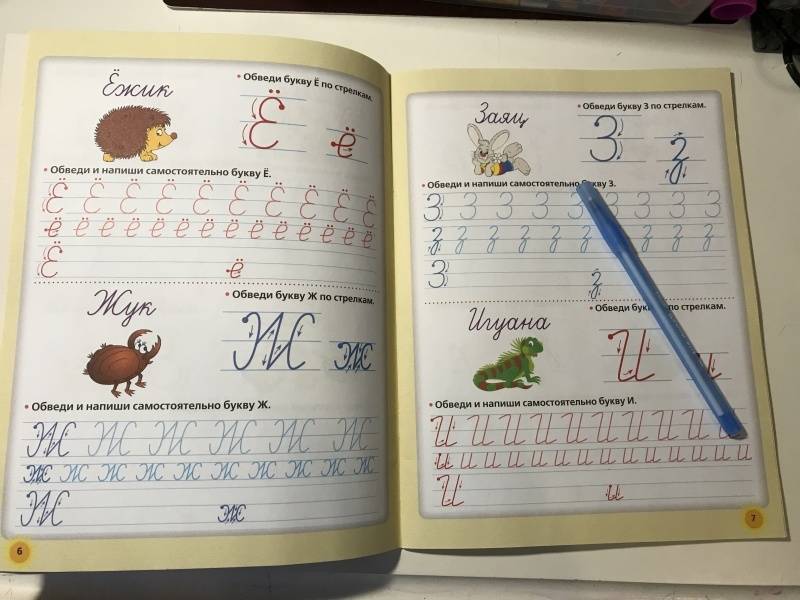 Ёжик
• Обведи букву Ё по стрелкам.
Ё ё
• Обведи и напиши самостоятельно букву Ё.
Ё Ё Ё Ё Ё Ё Ё Ё Ё Ё
ё ё ё ё ё ё ё ё ё ё ё ё ё ё
Ё ё
Жук
• Обведи букву Ж по стрелкам.
Ж ж
• Обведи и напиши самостоятельно букву Ж.
Ж Ж Ж Ж Ж Ж
ж ж ж ж ж ж ж ж ж ж
Ж ж
6
Заяц
• Обведи букву З по стрелкам.
З з
• Обведи и напиши самостоятельно З.
З З З З З З З З З
з з з з з з з з з
З з
Игуана
• Обведи по стрелкам.
И и
• Обведи и напиши самостоятельно букву И.
И И И И И И И И И
и и и и и и и и и и и и и
И и
7